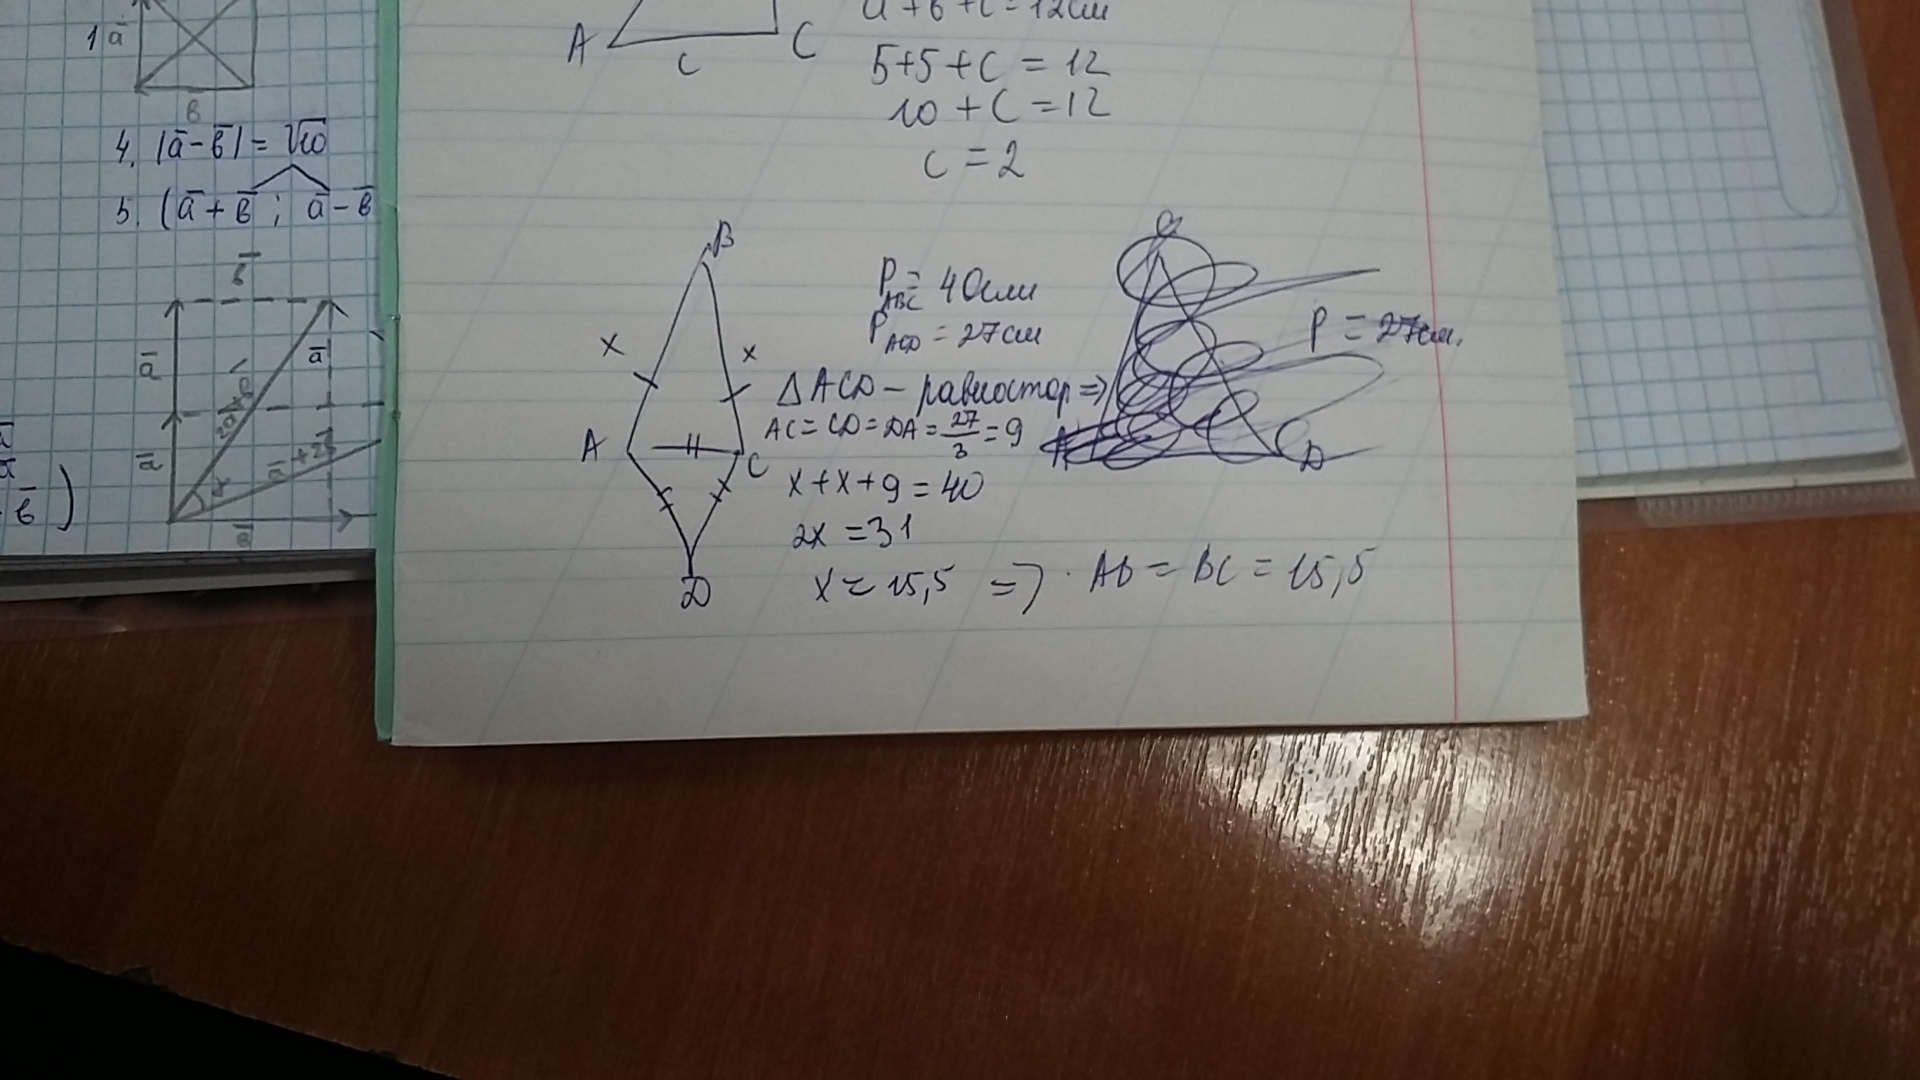 1 a̅
в
4. |a̅-в̅| = √10
5. (a̅+в̅ ; a̅-в̅
в̅
a̅
a̅
a̅
a̅+2в̅
в̅
в̅ )
A
C
C
a+в+c=12см
5+5+c=12
10+c=12
c=2
B
x
x
A
C
D
P ABC = 40см
P ACD = 27см
△ACD - равностор ⇒
AC=CD=DA=27/3=9
x+x+9=40
2x=31
x=15,5 ⇒ AB=BC=15,5
P=27см.
D